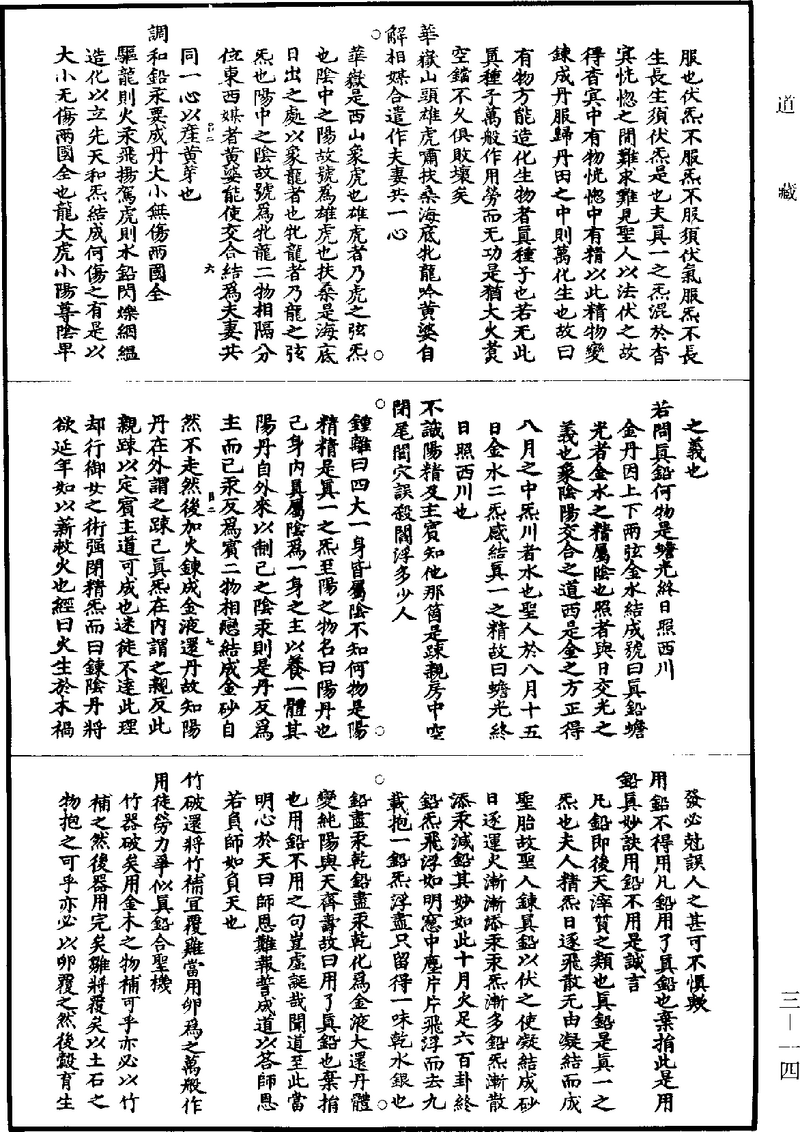 道藏
服也伏炁不服炁不服須伏氣服炁不長
生長生須伏炁是也夫眞一之炁混於杳
冥恍惚之間難求難見聖人以法伏之故
得杳冥中有物恍惚中有精以此精物變
鍊成丹服歸丹田之中則萬化生也故曰
有物方能造化生物者眞種子也若无此
眞種子萬般作用勞而无功是猶大火煑
空鐺不久俱敗壞矣
華嶽山頭雄虎嘯扶桑海底牝龍吟黄婆自
解相媒合遣作夫妻共一心
華嶽是西山象虎也雄虎者乃虎之弦炁
也陰中之陽故號爲雄虎也扶桑是海底
日出之處以象龍者也牝龍者乃龍之弦
炁也陽中之陰故號爲牝龍二物相隔分
位東西媒者黄婆能使交合結爲夫妻共
同一心以産黄芽也
調和鉛汞要成丹大小無傷兩國全
驅龍則火汞飛揚駕虎則水鉛閃爍絪緼
造化以立先天和炁結成何傷之有是以
大小无傷兩國全也龍大虎小陽尊陰卑
之義也
若問眞鉛何物是蟾光終日照西川
金丹因上下兩弦金水結成號曰眞鉛蟾
光者金水之精屬陰也照者與日交光之
義也象陰陽交合之道西是金之方正得
八月之中炁川者水也聖人於八月十五
日金水二炁感結眞一之精故曰蟾光終
日照西川也
不識陽精及主賓知他那箇是踈親房中空
閉尾閭穴誤殺閻浮多少人
鍾離曰四大一身皆屬陰不知何物是陽
精精是眞一之炁至陽之物名曰陽丹也
己身内眞屬陰爲一身之主以養一體其
陽丹自外來以制己之陰汞則是丹反爲
主而己汞反爲賓二物相戀結成金砂自
然不走然後加火鍊成金液還丹故知陽
丹在外謂之踈己眞炁在内謂之親反此
親踈以定賓主道可成也迷徒不達此理
却行御女之術强閉精炁而曰鍊陰丹將
欲延年如以薪救火也經曰火生於木禍
發必尅誤人之甚可不懼歟
用鉛不得用凡鉛用了眞鉛也棄捐此是用
鉛眞妙訣用鉛不用是誠言
凡鉛即後天滓質之類也眞鉛是眞一之
炁也夫人精炁日逐飛散无由凝結而成
聖胎故聖人鍊眞鉛以伏之使凝結成砂
日逐運火漸漸添汞汞炁漸多鉛炁漸散
添汞減鉛其妙如此十月火足六百卦終
鉛炁飛浮如明窓中塵片片飛浮而去九
載抱一鉛炁浮盡只留得一味乾水銀也
鉛盡汞乾鉛盡汞乾化爲金液大還丹體
變純陽與天齊壽故曰用了眞鉛也棄捐
也用鉛不用之句豈虛誕哉聞道至此當
明心於天曰師恩難報誓成道以荅師恩
若負師如負天也
竹破還將竹補宜覆雞當用卵爲之萬般作
用徒勞力爭似眞鉛合聖機
竹器破矣用金木之物補可乎亦必以竹
補之然後器用完矣雛將覆矣以土石之
物抱之可乎亦必以卵覆之然後轂育生
三—一四